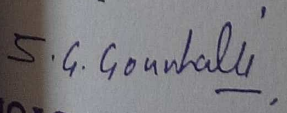 S. G. Gounhalli